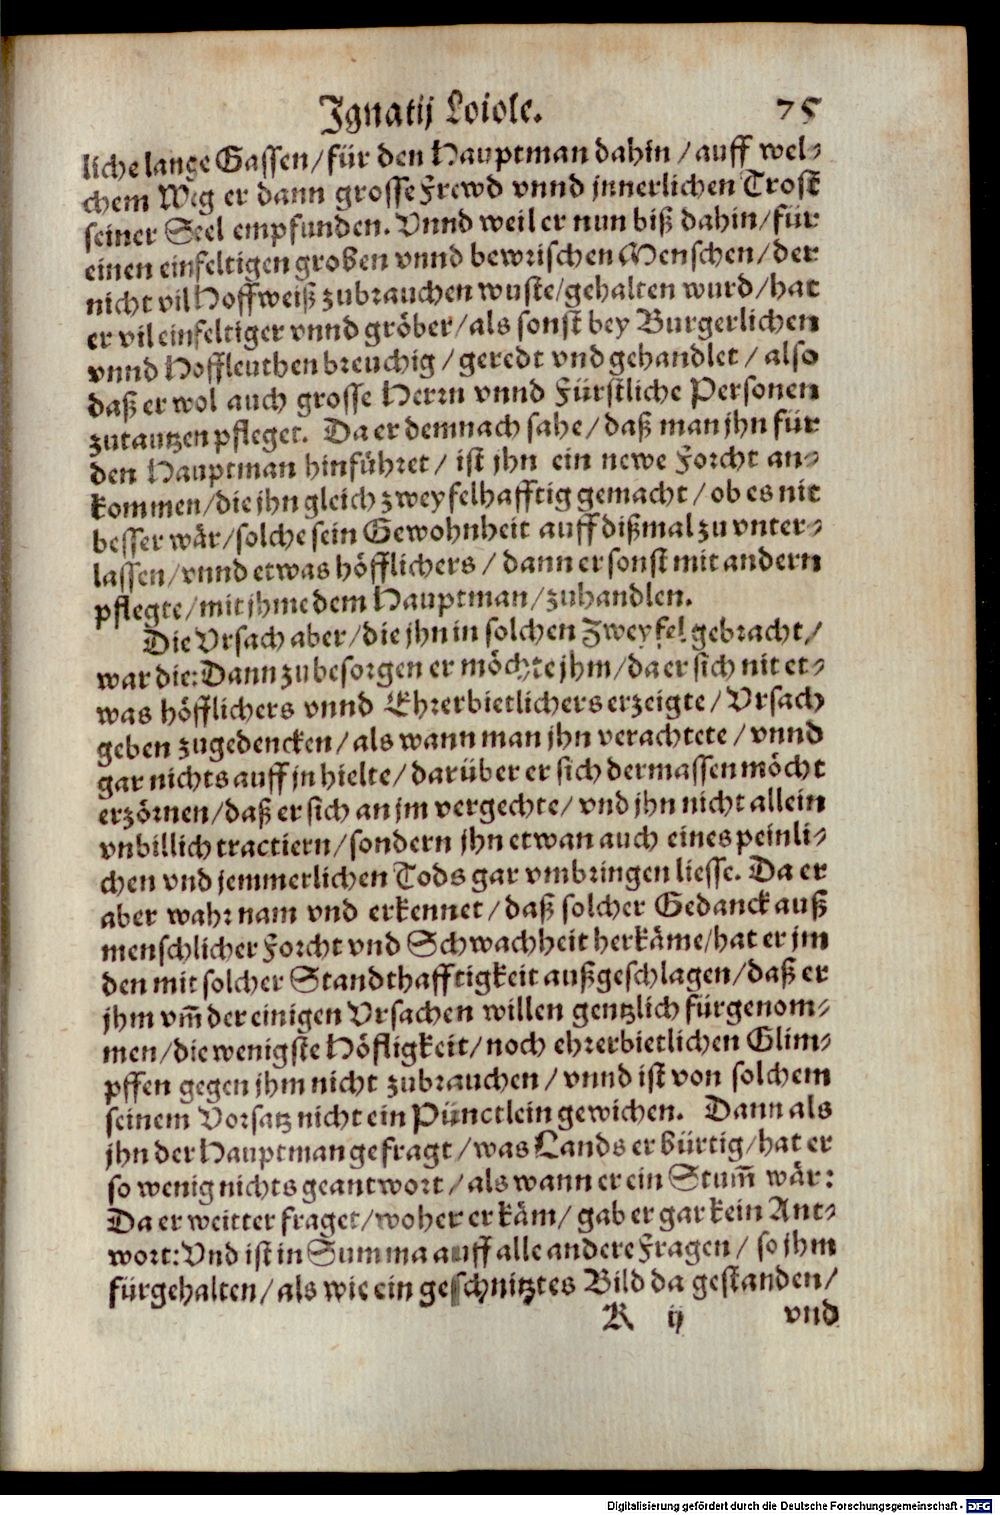 Ignatij Loiole. 75
liche lange Gassen/für den Hauptman dahin/auff wel-
chem Weg er dann grosse Frewd vnnd jnnerlichen Trost
seiner Seel empfunden. Vnnd weil er nun biß dahin/für
einen einfeltigen groben vnnd bewrischen Menschen/der
nicht vil Hoffweiß zubrauchen wuste/gehalten wurd/hat
er vil einfeltiger vnnd gröber/als sonst bey Burgerlichen
vnnd Hoffleuthen breuchig/geredt vnd gehandlet/also
daß er wol auch grosse Herrn vnnd Fürstliche Personen
zutautzen pfleget. Da er demnach sahe/daß man jhn für
den Hauptman hinführet/ist jhn ein newe Forcht an-
kommen/die jhn gleich zweyfelhafftig gemacht/ob es nit
besser wär/solche sein Gewohnheit auff dißmal zu vnter-
lassen/vnnd etwas höfflichers/dann er sonst mit andern
pflegte/mit jhme dem Hauptman/zuhandlen.
Die Vrsach aber/die jhn in solchen Zweyfel gebracht/
war die: Dann zubesorgen er möchte jhm/da er sich nit et-
was höfflichers vnnd Ehrerbietlichers erzeigte/Vrsach
geben zugedencken/als wann man jhn verachtete/vnnd
gar nichts auff jn hielte/darüber er sich dermassen möcht
erzörnen/daß er sich an jm vergechte/vnd jhn nicht allein
vnbillich tractiern/sondern jhn etwan auch eines peinli-
chen vnd jemmerlichen Tods gar vmbringen liesse. Da er
aber wahrnam vnd erkennet/daß solcher Gedanck auß
menschlicher Forcht vnd Schwachheit herkäme/hat er jm
den mit solcher Standthafftigkeit außgeschlagen/daß er
jhm vm̃ der einigen Vrsachen willen gentzlich fürgenom-
men/die wenigste Höfligkeit/noch ehrerbietlichen Glim-
pffen gegen jhm nicht zubrauchen/vnnd ist von solchem
seinem Vorsatz nicht ein Pünctlein gewichen. Dann als
jhn der Hauptman gefragt/was Lands er bürtig/hat er
so wenig nichts geantwort/als wann er ein Stum̃ wär:
Da er weitter fraget/woher er käm/gab er gar kein Ant-
wort: Vnd ist in Summa auff alle andere Fragen/so jhm
fürgehalten/als wie ein geschnitztes Bild da gestanden/
K ij vnd
Digitalisierung gefördert durch die Deutsche Forschungsgemeinschaft - DFG